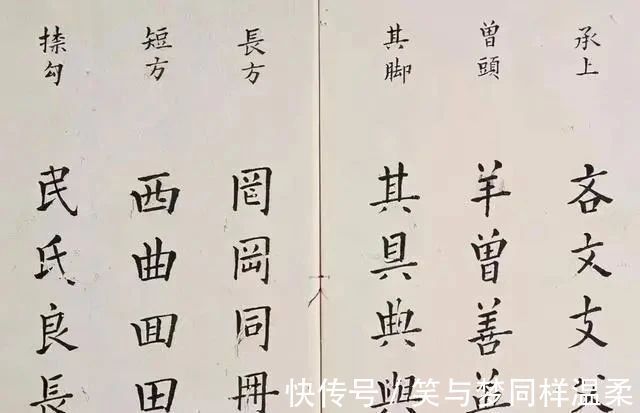 承上
吝文支
曾頭
羊曾善益
其脚
其具典與
長方
罔岡同冊
短方
西曲囬田
捺勾
民氏良長
快传号 / 笑与梦同样温柔